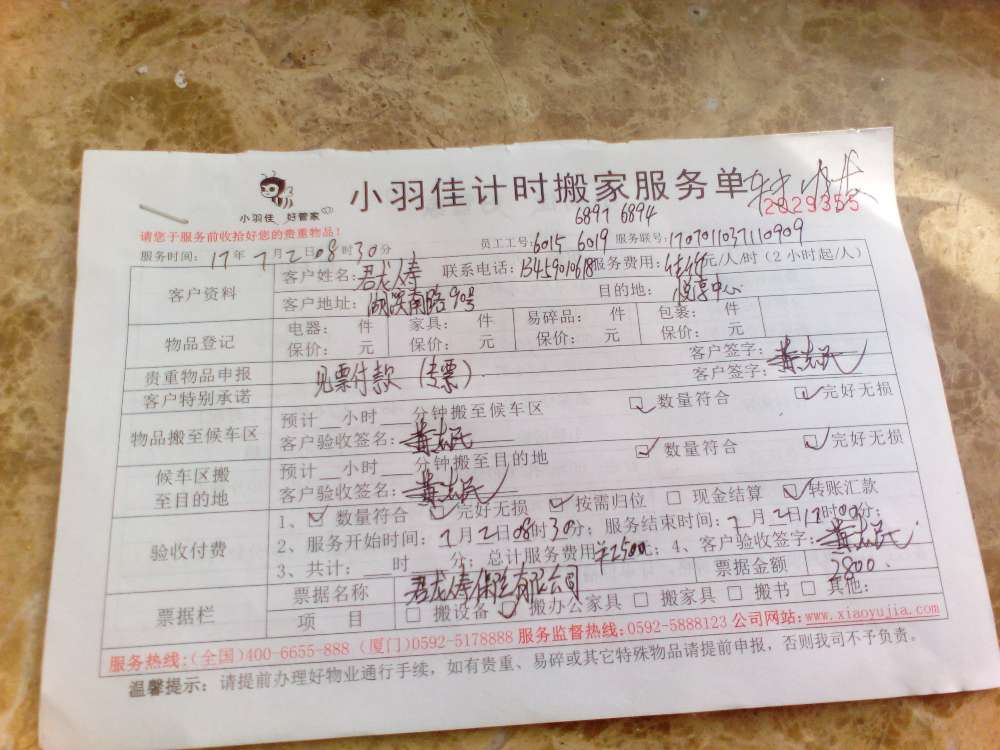 小羽佳 好管家
小羽佳计时搬家服务单
2829355
请您于服务前收拾好您的贵重物品!
6897 6894
服务时间: 17年7月2日08时30分 员工工号:6015 6019 服务联号:1707011037110909
客户资料
客户姓名:君龙人寿 联系电话:13459010618 服务费用: 元/人/时(2小时起/人)
客户地址: 湖滨南路90号 目的地: 中心
物品登记
电器: 件 家具: 件 易碎品: 件 包装: 件
保价: 元 保价: 元 保价: 元 保价: 元
贵重物品申报 客户签字:
客户特别承诺 见票付款(专票) 客户签字:黄志民
物品搬至候车区
预计__小时___分钟搬至候车区 数量符合 完好无损
客户验收签名:黄志民
候车区搬至目的地
预计__小时___分钟搬至目的地 数量符合 完好无损
客户验收签名:黄志民
验收付费
1、数量符合 完好无损 按需归位 现金结算 转账汇款
2、服务开始时间:7月2日08时30分;服务结束时间:7月2日12时00分;
3、共计:___时___分;总计服务费用¥2500元;4、客户验收签字:黄志民
票据栏
票据名称 君龙人寿保险有限公司 票据金额 2800.
项 目 搬设备 搬办公家具 搬家具 搬书 其他:
服务热线:(全国)400-6655-888 (厦门)0592-5178888 服务监督热线:0592-5888123 公司网站:www.xiaoyujia.com
温馨提示:请提前办理好物业通行手续,如有贵重、易碎或其它特殊物品请提前申报,否则我司不予负责。